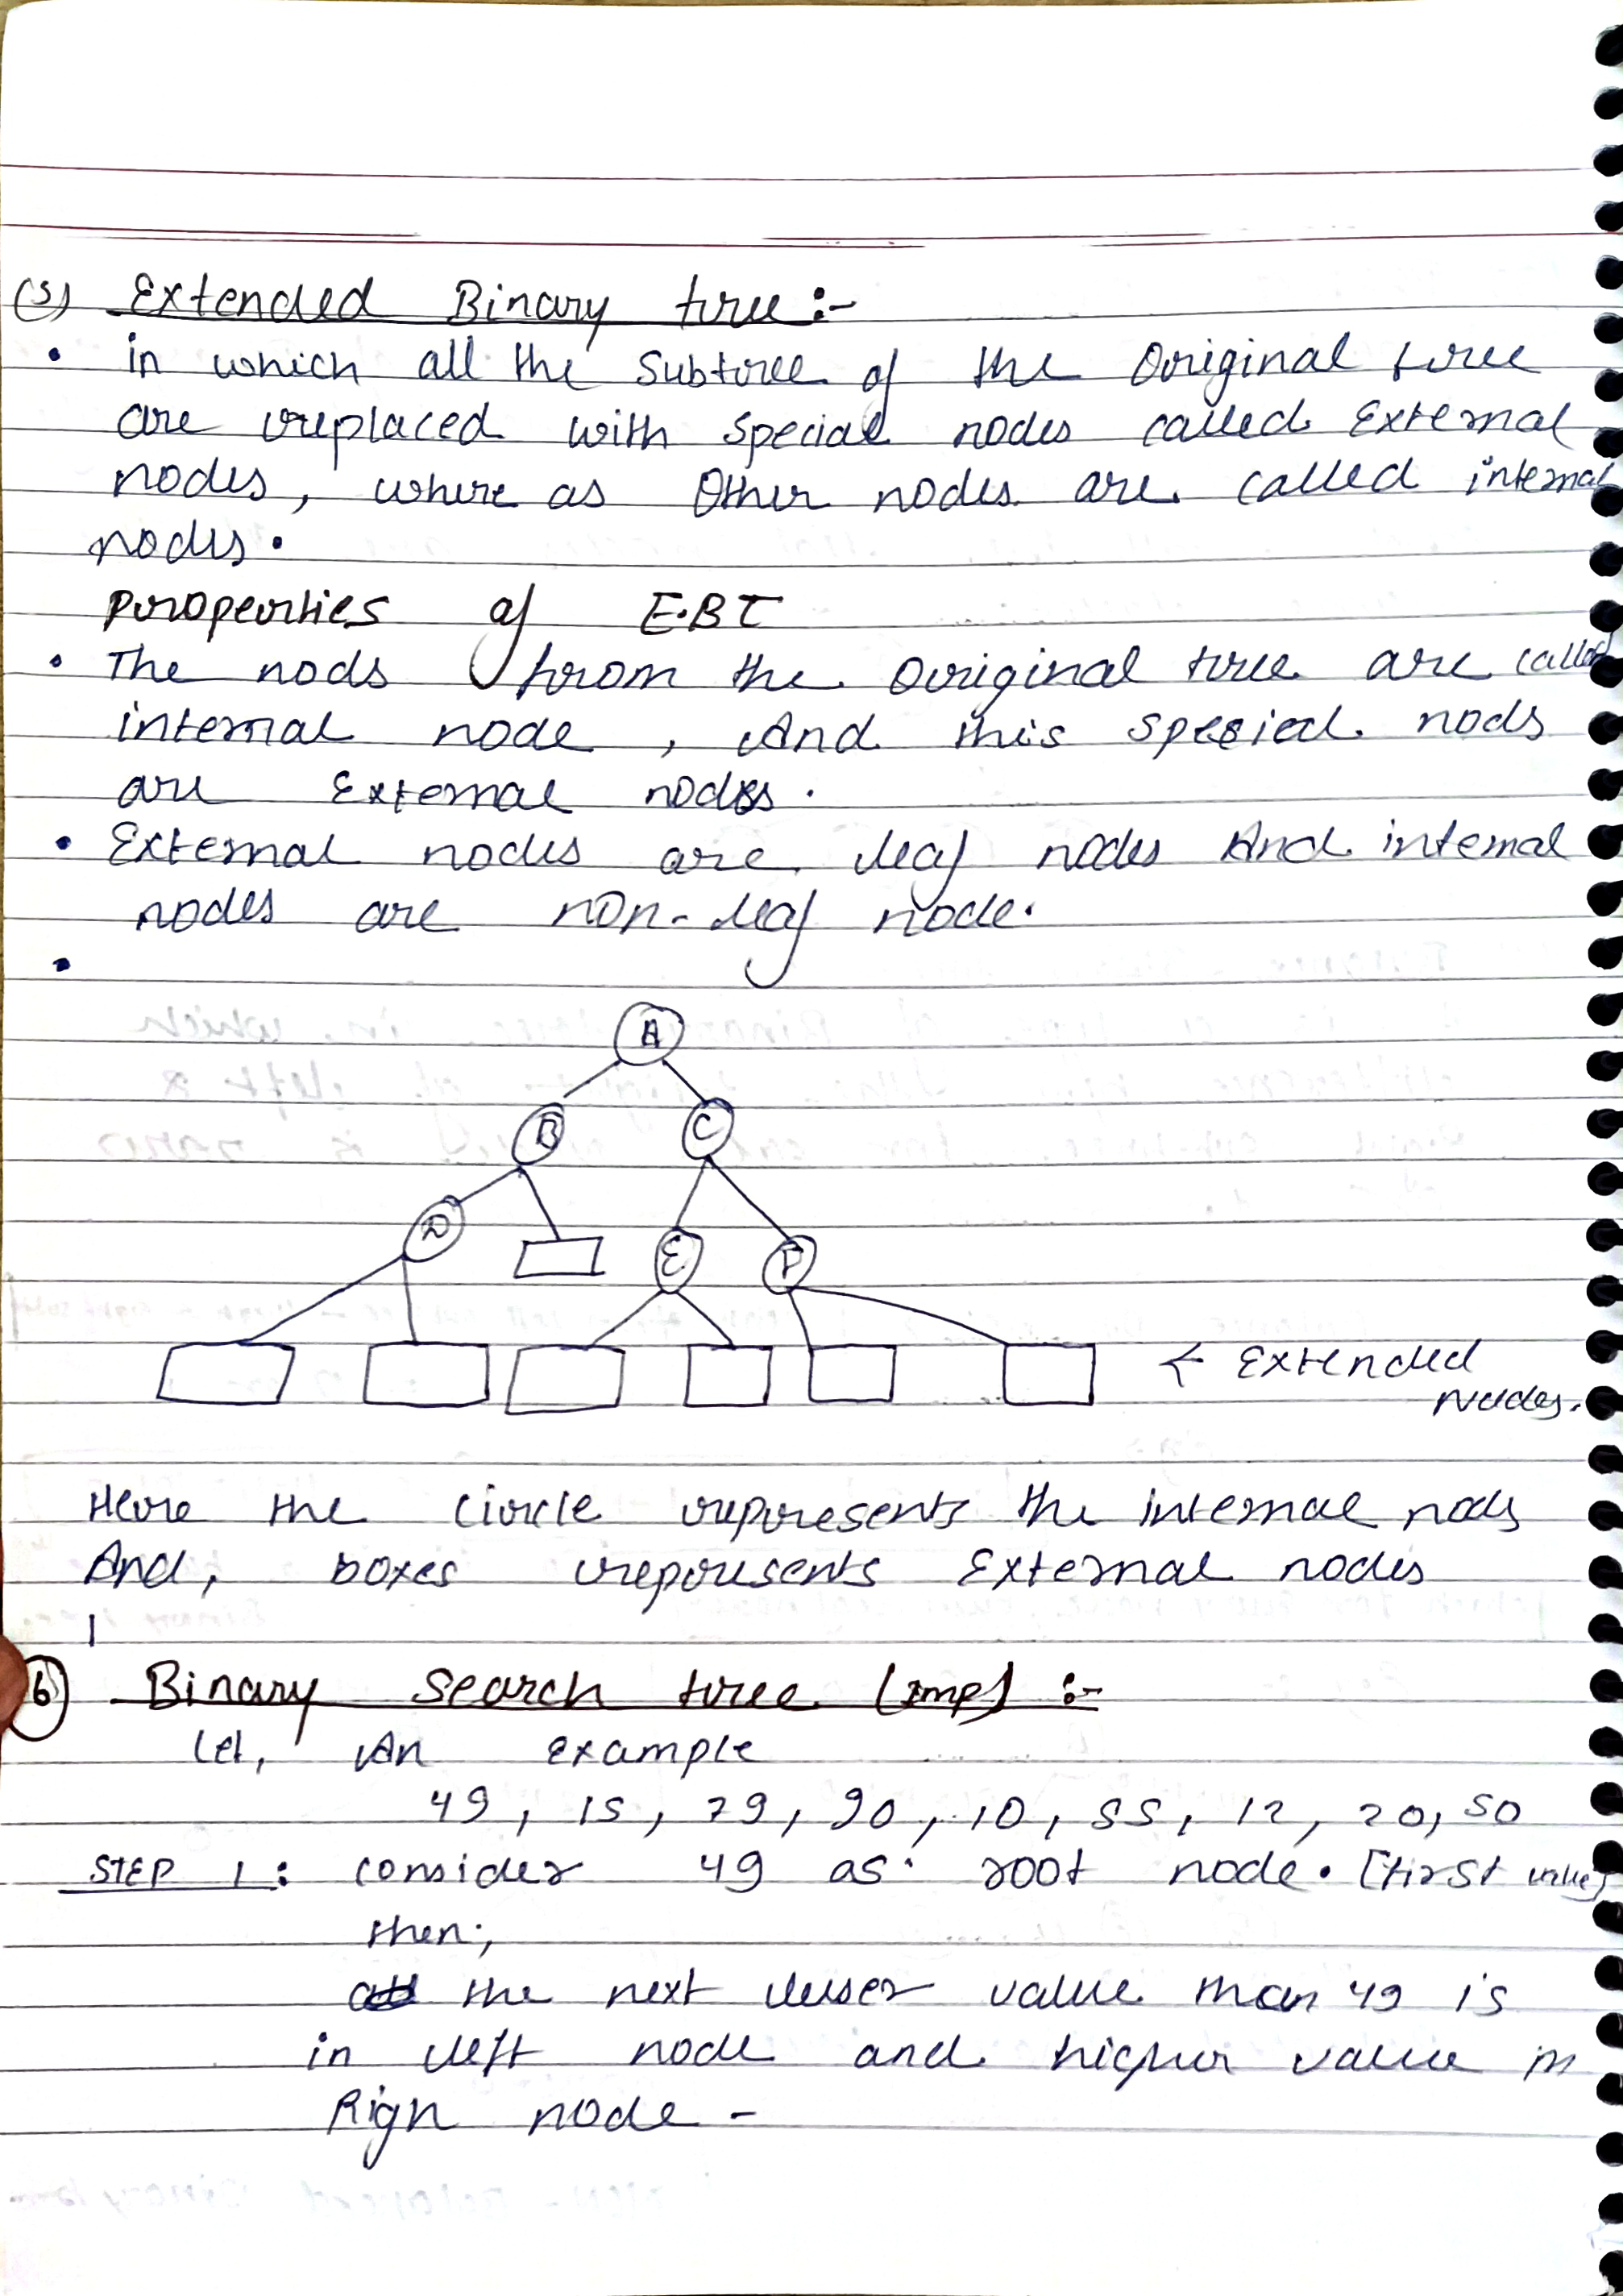 (5) Extended Binary tree :-
• in which all the Subtree of the Original tree
are replaced with special nodes called External
nodes, where as Other nodes are called internal
nodes.
properties of E.B.T
• The nods from the Original tree are called
internal node, And this special nods
are External nodes.
• External nodes are leaf nodes And internal
nodes are non-leaf node.
•
A
B C
D E F
← Extended
Nodes.
Here the circle represents the internal nods
And, boxes represents External nodes
6 Binary Search tree (Imp) :-
Let, An example
49, 15, 79, 90, 10, 55, 12, 20, 50
STEP 1: consider 49 as root node. [first value]
then;
the next lesser value than 49 is
in left node and higher value in
Righ node -